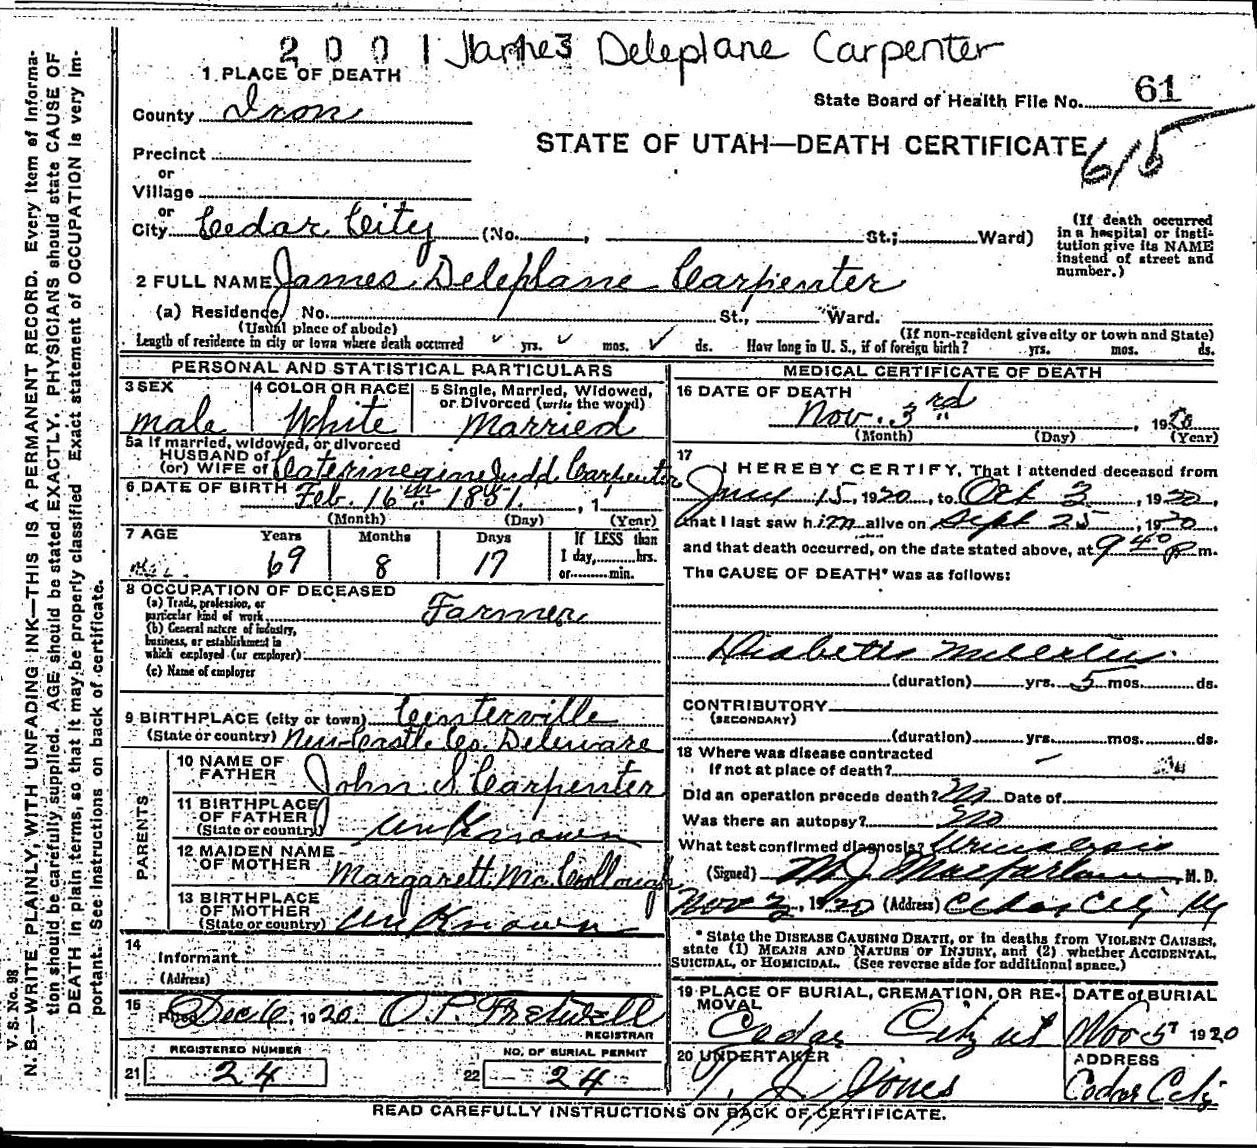 2001 James Deleplane Carpenter
1 PLACE OF DEATH
State Board of Health File No. 61
County Iron
STATE OF UTAH—DEATH CERTIFICATE
615
Precinct
or
Village
or
City Cedar City (No. , St.; Ward)
(If death occurred
in a hospital or insti-
tution give its NAME
instead of street and
number.)
2 FULL NAME James Deleplane Carpenter
(a) Residence, No. St., Ward.
(Usual place of abode)
(If non-resident give city or town and State)
Length of residence in city or town where death occurred yrs. mos. ds. How long in U. S., if of foreign birth? yrs. mos. ds.
PERSONAL AND STATISTICAL PARTICULARS
3 SEX
male
4 COLOR OR RACE
White
5 Single, Married, Widowed,
or Divorced (write the word)
Married
5a If married, widowed, or divorced
HUSBAND of
(or) WIFE of Judd Carpenter
6 DATE OF BIRTH Feb. 16th 1851. , 1
(Month) (Day) (Year)
7 AGE
Years Months Days
69 8 17
If LESS than
1 day, hrs.
or min.
8 OCCUPATION OF DECEASED
(a) Trade, profession, or
particular kind of work Farmer
(b) General nature of industry,
business, or establishment in
which employed (or employer)
(c) Name of employer
9 BIRTHPLACE (city or town) Centerville
(State or country) New Castle Co. Deleware
PARENTS
10 NAME OF
FATHER John S Carpenter
11 BIRTHPLACE
OF FATHER
(State or country) unknown
12 MAIDEN NAME
OF MOTHER Margarett McCollough
13 BIRTHPLACE
OF MOTHER
(State or country) unknown
14
Informant
(Address)
15
Filed Dec 6, 1920. O. P. Fretwell
REGISTRAR
REGISTERED NUMBER
21 24
NO. OF BURIAL PERMIT
22 24
MEDICAL CERTIFICATE OF DEATH
16 DATE OF DEATH
Nov. 3rd , 1920
(Month) (Day) (Year)
17
I HEREBY CERTIFY, That I attended deceased from
15, 1920, to Oct 3, 1920,
that I last saw him alive on Sept 25, 1920
and that death occurred, on the date stated above, at 9 40 p m.
The CAUSE OF DEATH* was as follows:
Diabetis Mellitus
(duration) yrs. 5 mos. ds.
CONTRIBUTORY
(SECONDARY)
(duration) yrs. mos. ds.
18 Where was disease contracted
if not at place of death?
Did an operation precede death? No Date of
Was there an autopsy? No
What test confirmed diagnosis? Urinalysis
(Signed) M J Macfarlane M. D.
Nov 3, 1920 (Address) Cedar City
* State the DISEASE CAUSING DEATH, or in deaths from VIOLENT CAUSES,
state (1) MEANS AND NATURE OF INJURY, and (2) whether ACCIDENTAL,
SUICIDAL, or HOMICIDAL. (See reverse side for additional space.)
19 PLACE OF BURIAL, CREMATION, OR RE-
MOVAL
Cedar City ut
DATE of BURIAL
Nov 5 1920
20 UNDERTAKER
T. J. Jones
ADDRESS
Cedar City
READ CAREFULLY INSTRUCTIONS ON BACK OF CERTIFICATE.
V. S. No. 98
N. B.—WRITE PLAINLY, WITH UNFADING INK—THIS IS A PERMANENT RECORD. Every item of informa-
tion should be carefully supplied. AGE should be stated EXACTLY. PHYSICIANS should state CAUSE OF
DEATH in plain terms, so that it may be properly classified. Exact statement of OCCUPATION is very im-
portant. See instructions on back of certificate.